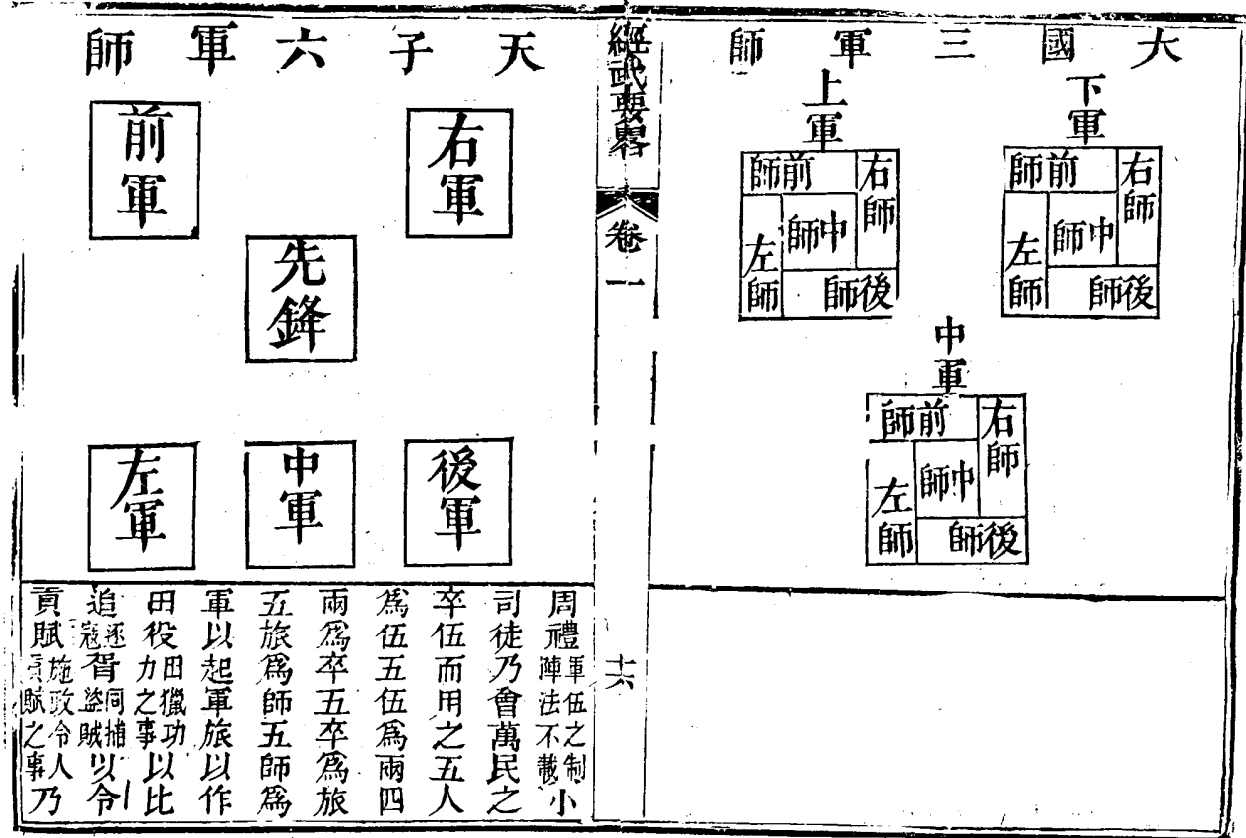 大國三軍師
下軍
右師
前師
中師
左師
後師
上軍
右師
前師
中師
左師
後師
中軍
右師
前師
中師
左師
後師
經武要畧
卷一
十六
天子六軍師
右軍
前軍
先鋒
後軍
中軍
左軍
周禮軍伍之制陣法不載小
司徒乃會萬民之
卒伍而用之五人
爲伍五伍爲兩四
兩爲卒五卒爲旅
五旅爲師五師爲
軍以起軍旅以作
田役田獵功力之事以比
追逐寇胥同捕盜賊以令
貢賦施政令人貢賦之事乃